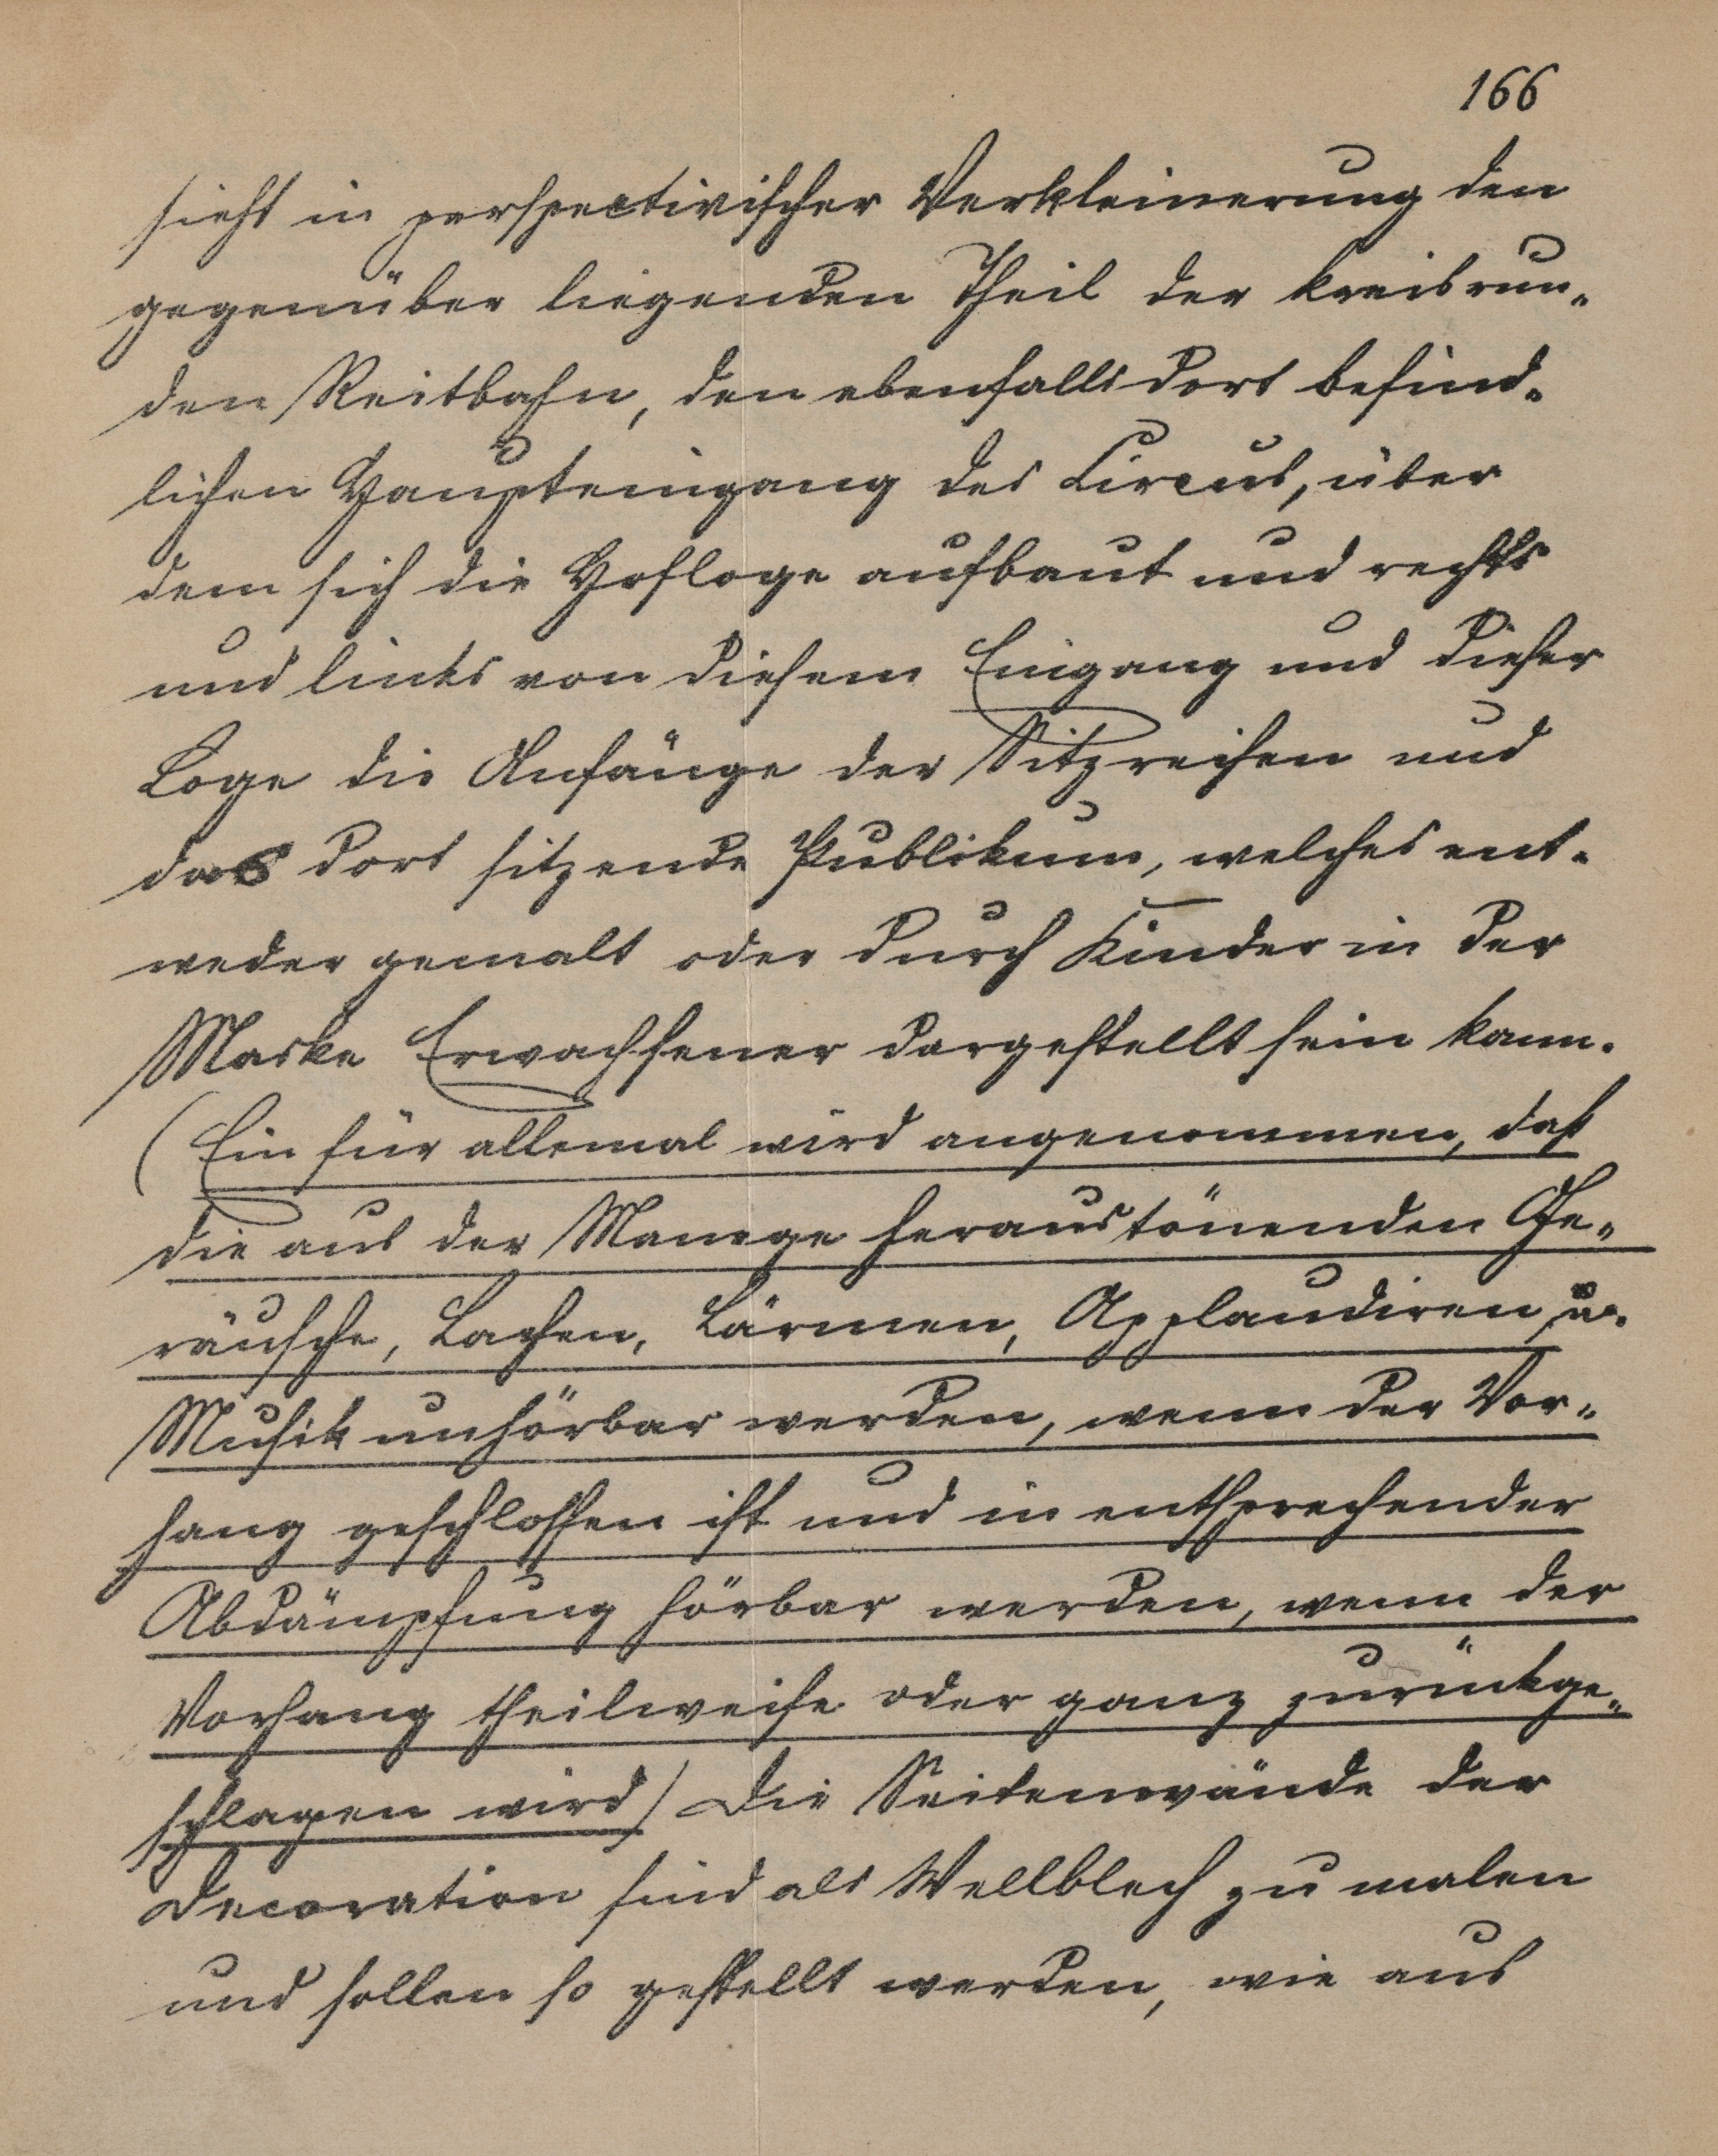 166
sieht in perspectivischer Verkleinerung den
gegenüber liegenden Theil der kreisrun-
den Reitbahn, den ebenfalls dort befind-
lichen Haupteingang des Circus, über
dem sich die Hofloge aufbaut und rechts
und links von diesem Eingang und dieser
Loge die Anfänge der Sitzreihen und
das dort sitzende Publikum, welches ent-
weder gemalt oder durch Kinder in der
Maske Erwachsener dargestellt sein kann.
(Ein für allemal wird angenommen, daß
die aus der Manege heraustönenden Ge-
räusche, Lachen, Lärmen, Applaudiren, u.
Musik unhörbar werden, wenn der Vor-
hang geschlossen ist und in entsprechender
Abdämpfung hörbar werden, wenn der
Vorhang theilweise oder ganz zurückge-
schlagen wird) Die Seitenwände der
Decoration sind als Wellblech zu malen
und sollen so gestellt werden, wie aus